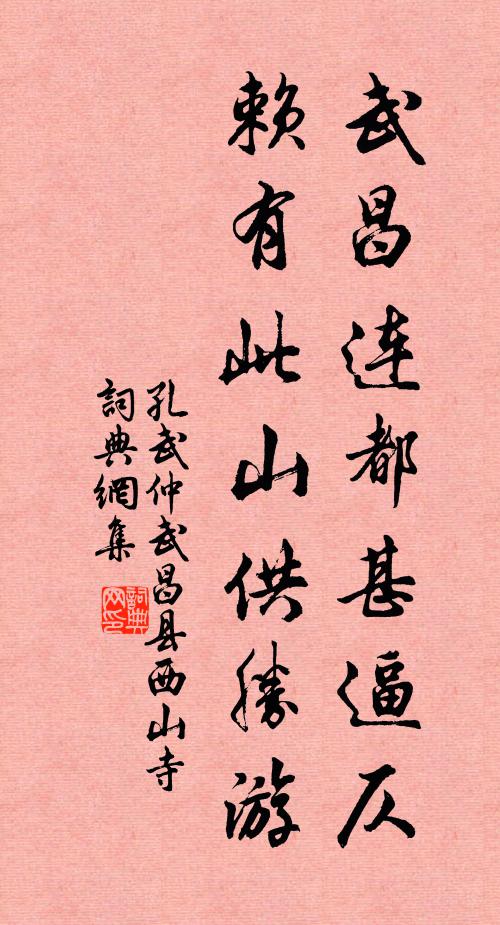 武昌连都甚逼仄
赖有此山供勝游
孔武仲武昌县西山寺
詞典網集
詞典网印